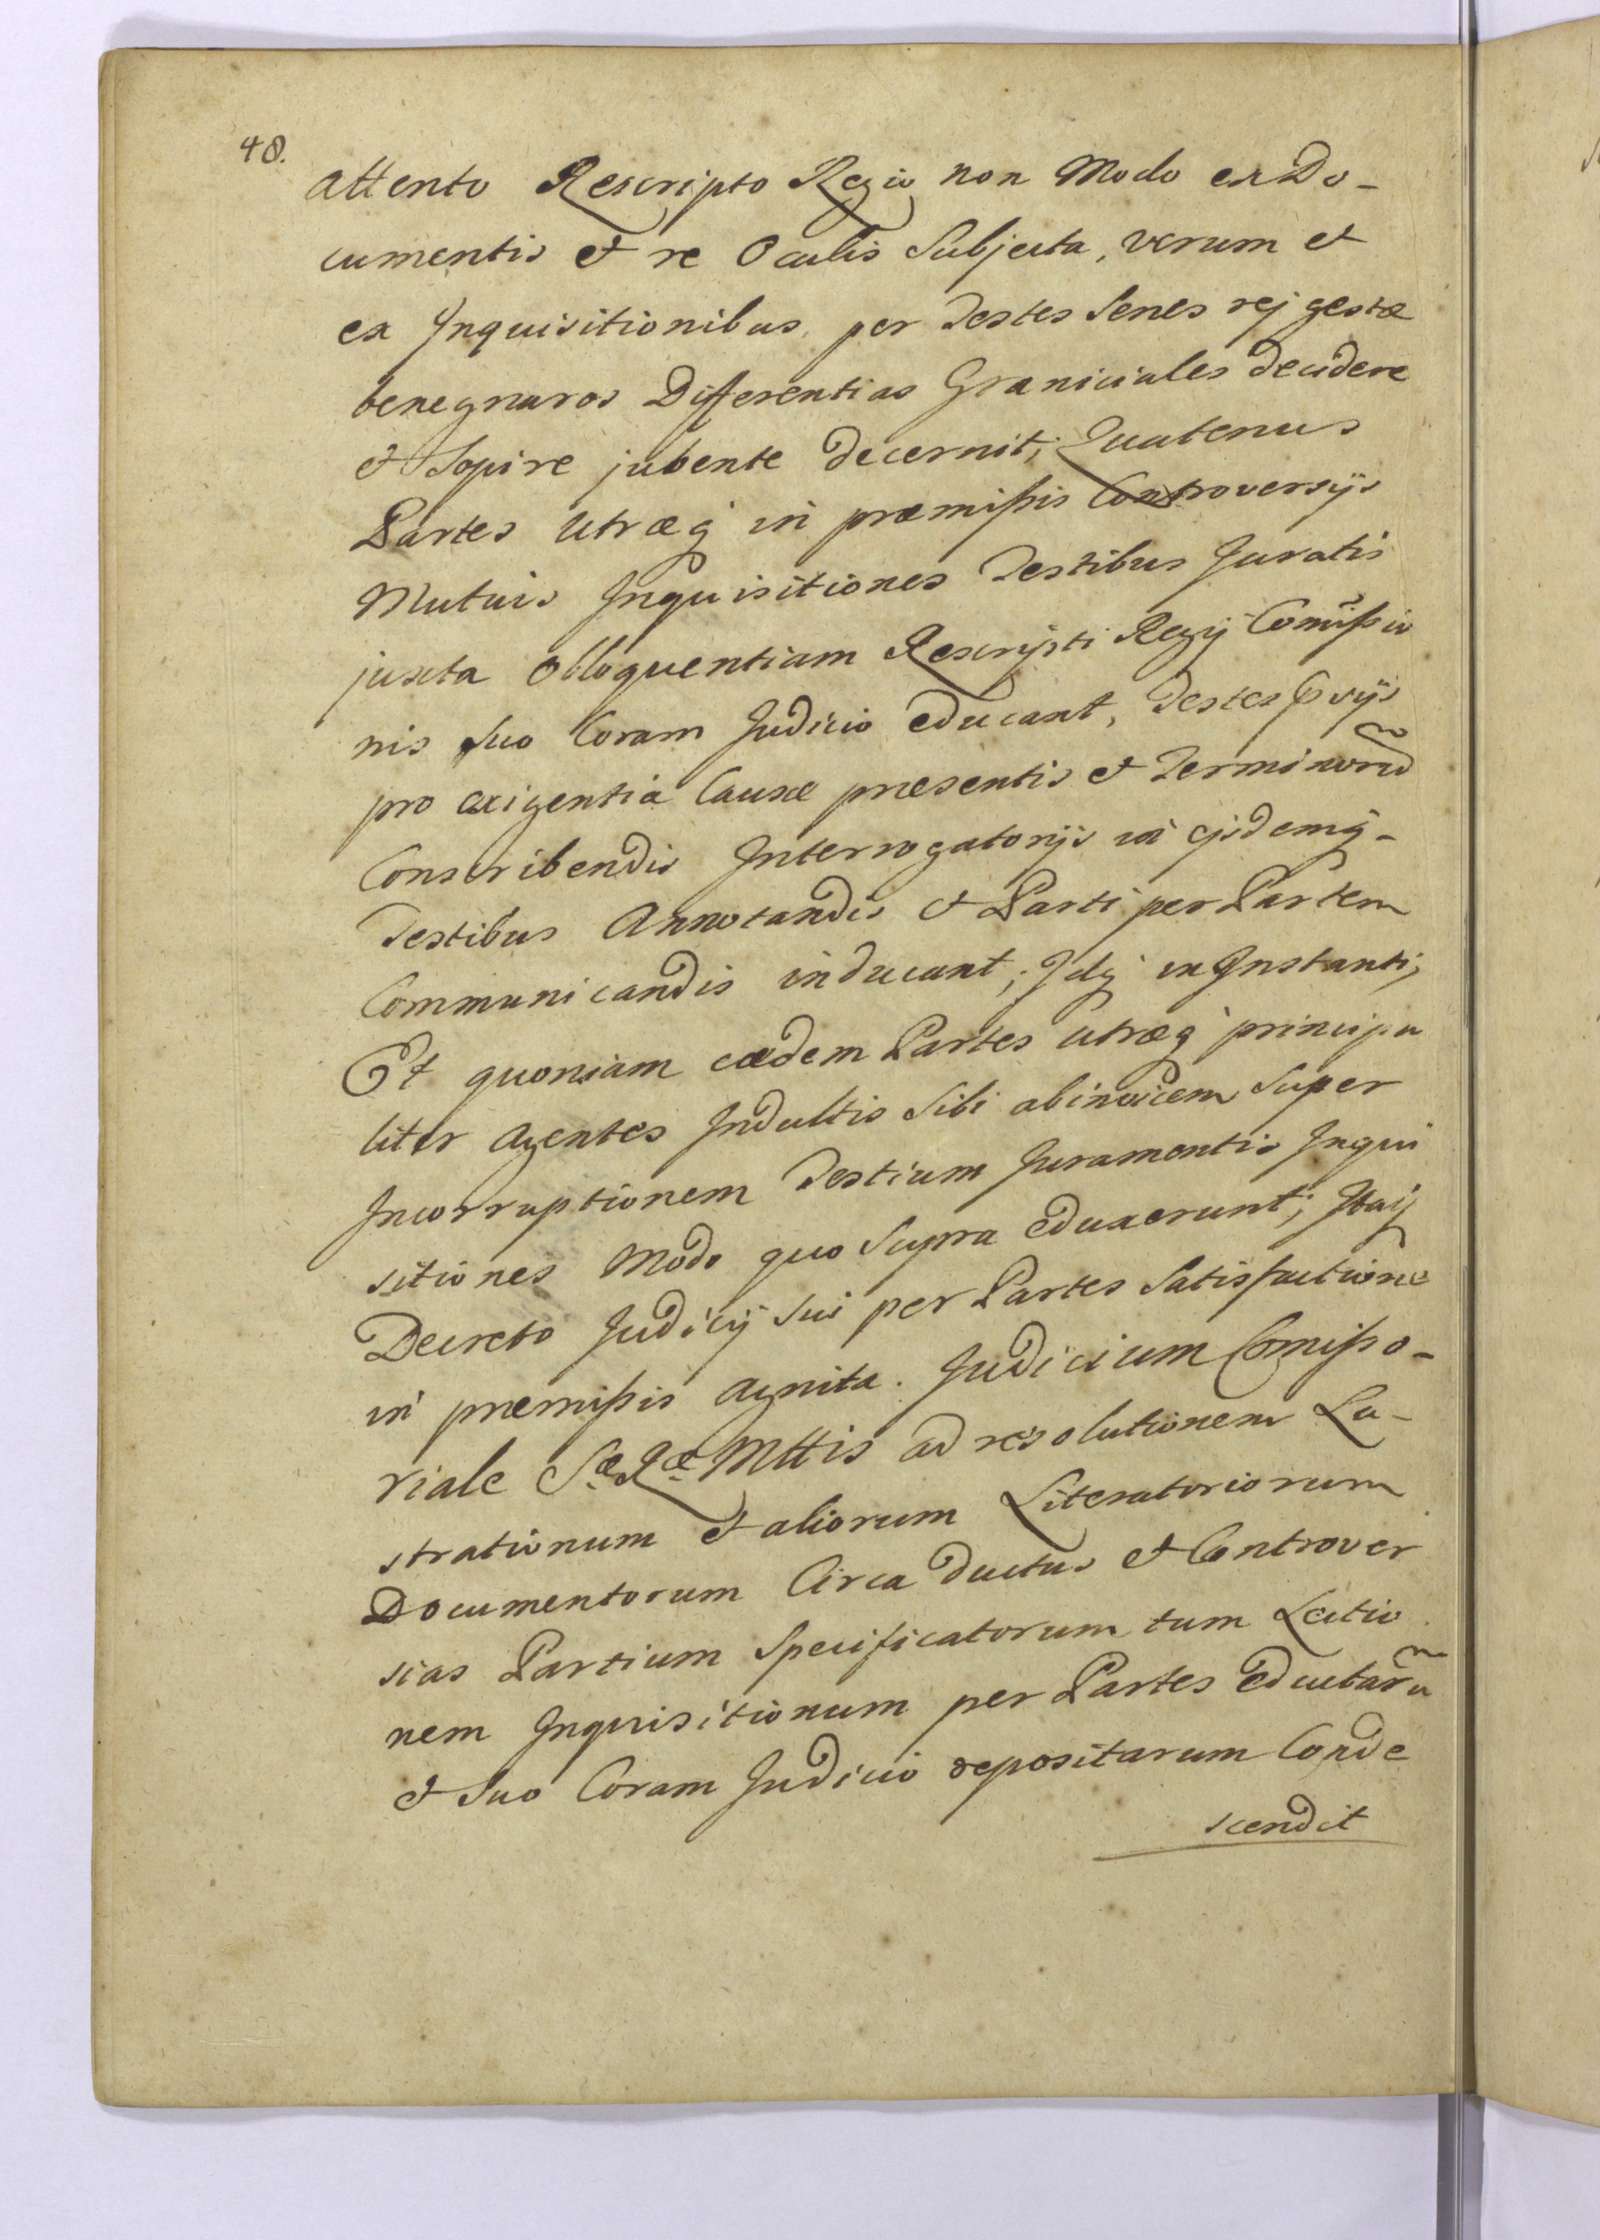 48.
attento Rescripto Regio non Modo ex Do-
cumentis et re Oculis Subjecta, verum et
ex Inquisitionibus per Testes Senes rej gestæ
benegnaros Differentias Graniciales decidere
et Sopire jubente decernit; Quatenus
Partes Utræq in præmissis Controversijs
Mutuis Inquisitiones Testibus Juratis
juxta Obloquentiam Rescripti Regij Comissio
nis Suo Coram Judicio educant, Testes
pro exigentia Causæ præsentis et Terminorũ
Conscribendis Interrogatorijs ijsdemq-
Testibus Annotandis et Parti per Partem
Communicandis inducant; Idq in Instanti;
Et quoniam eædem Partes utræq principa
liter Agentes Indultis Sibi abinvicem Super
Incorruptionem Testium Juramentis Inqui
sitiones Modo quo Supra eduxerunt; Itaq
Decreto Judicij Sui per Partes Satisfactione
in præmissis agnita. Judicium Comisso-
riale Sæ Ræ Mttis ad resolutionem Lu-
strationum et aliorum Literatoriorum
Documentorum Circa ductus et Controver
sias Partium Specificatorum tum Lectio
nem Inquisitionum per Partes Eductarũ
et Suo Coram Judicio repositarum Conde
scendit